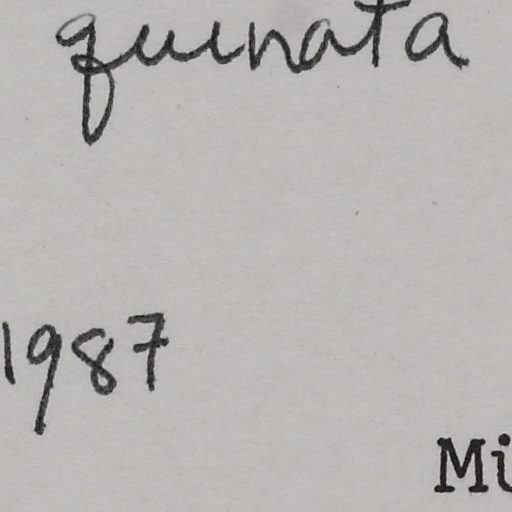 quinata
1987
Mi